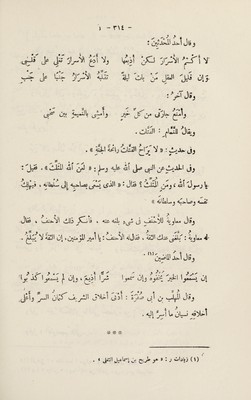 - ٣١٤ -
وقال أحدُ المُحْدَثين:
لا أكتُمُ الأسرارَ لكن أُذِيعُها ولا أدَعُ الأسرارَ تَغْلِي على قلبي
وإن قليلَ العقلِ مَنْ باتَ ليلَهُ تُقَلِّبُه الأسرارُ جَنْبًا على جَنْبِ
وقال آخر:
وأمنَعُ جارتي من كلِّ خيرٍ وأمشِي بالنَّميمةِ بين صَحْبي
ويقالُ للنَّمَّام: القَتَّات.
وفى حديثٍ: « لا يَرَاحُ القَتَّاتُ رائحةَ الجنَّةِ ».
وفى الحديث عن النبى صلى الله عليه وسلم: « لَعَنَ اللهُ المُثَلِّثَ ». فقيل:
يا رسولَ الله، ومَنِ المُثَلِّثُ؟ فقال: « الذى يَسْعَى بصاحبِه إلى سُلطانِه، فيُهْلِكُ
نفسَه وصاحبَه وسلطانَه »
وقال معاويةُ للأحْنَفِ فى شىءٍ بلغه عنه . فأنكر ذلك الأحنف. فقال
له معاويةُ: بَلَّغَنى عنك الثِّقةُ. فقال له الأحنفُ: يا أمير المؤمنين، إن الثقةَ لا يُبَلِّغُ.
وقال أحدُ الماضِينَ(١):
إن يسمَعُوا الخيرَ يُخْفُوهُ وإن سَمِعوا شَرًّا أُذِيعَ، وإن لم يَسْمَعُوا كَذَبوا
وقال المُهلَّبُ بن أبى صُفْرَةَ: أدْنَى أخلاقِ الشريفِ كِتمانُ السرِّ وأعْلَى
أخلاقِه نسيانُ ما أُسِرَّ إليه.
***
(١) زيادات ر: « هو طريح بن إسماعيل الثقفى ».